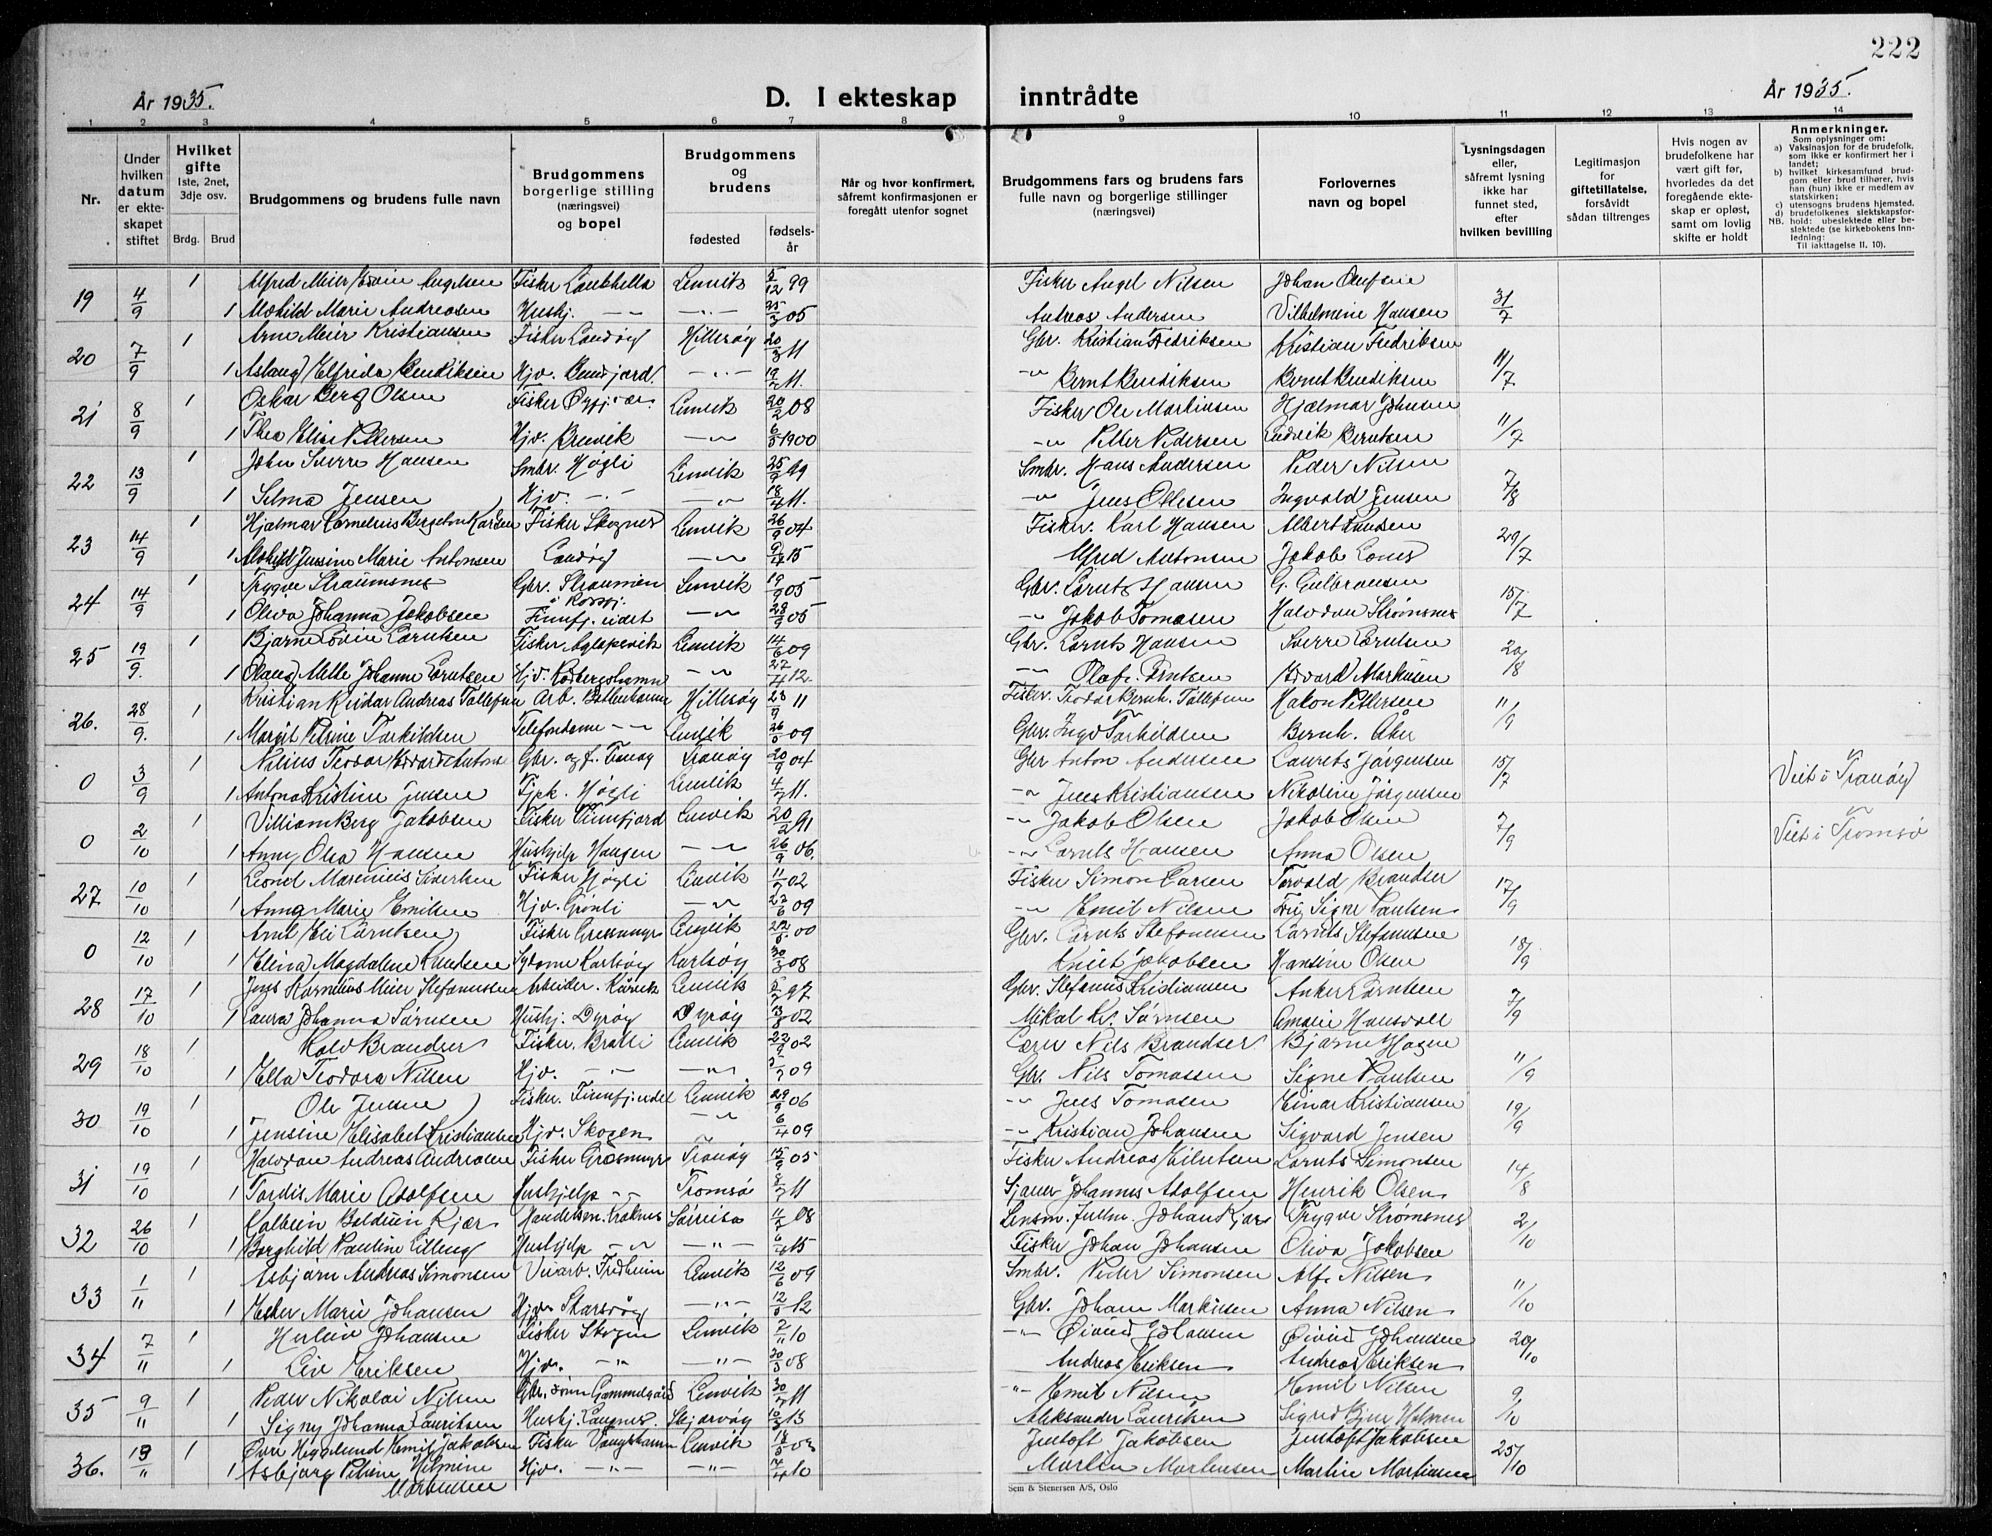 222
År 1935.
D. I ekteskap inntrådte
År 1935.
1 2 3 4 5 6 7 8 9 10 11 12 13 14
Nr.
Under hvilken datum er ekteskapet stiftet
Hvilket gifte
1ste, 2net, 3dje osv.
Brdg. Brud
Brudgommens og brudens fulle navn
Brudgommens borgerlige stilling (næringsvei) og bopel
Brudgommens og brudens
fødested
fødselsår
Når og hvor konfirmert, såfremt konfirmasjonen er foregått utenfor sognet
Brudgommens fars og brudens fars fulle navn og borgerlige stillinger (næringsvei)
Forlovernes navn og bopel
Lysningsdagen eller, såfremt lysning ikke har funnet sted, efter hvilken bevilling
Legitimasjon for giftetillatelse, forsåvidt sådan tiltrenges
Hvis nogen av brudefolkene har vært gift før, hvorledes da det foregående ekteskap er opløst, samt om lovlig skifte er holdt
Anmerkninger.
Som oplysninger om:
a) Vaksinasjon for de brudefolk, som ikke er konfirmert her i landet;
b) hvilket kirkesamfund brudgom eller brud tilhører, hvis han (hun) ikke er medlem av statskirken;
c) utensogns brudens hjemsted.
d) brudefolkenes slektskapsforhold: ubeslektede eller beslektede (se kirkebokens Innledning:
NB. Til iakttagelse II, 10).
19 4/9 1 Alfred Meier Edvin Angelsen Fisker Laukhella Lenvik 5/12 99 Fisker Angel Nilsen Johan Olufsen
1 Mathild Marie Andreasen Hushj. 25/3 05 Andreas Andersen Vilhelmine Hansen 31/7
20 7/9 1 Arne Meier Kristiansen Fisker Sandøy Hillesøy 20/3 11 Gbr. Kristian Fredriksen Kristian Fredriksen
1 Aslaug Elfrida Bendiksen Hjv. 19/7 11. Bernt Bendiksen Bernt Bendiksen 11/7
21 8/9 1 Oskar Berg Olsen Fisker Lenvik 20/2 08 Fisker Ole Martinsen Hjalmar Johnsen
1 Thea Elise Pettersen Hjv. Brevik 6/5 1900 Petter Pedersen Ludvik Berntsen 11/7
22 13/9 1 John Sverre Hansen Smbr. Høgli Lenvik 25/9 99 Smbr. Hans Andersen Peder Nilsen
1 Selma Jensen Hjv. 18/4 11. Jens Ottesen Ingvald Jensen 7/8
23 14/9 1 Hjalmar Kornelius Bergeton Karlsen Fisker Skognes Lenvik 26/9 04 Fisker. Karl Hansen Albert Knudsen
1 Mathild Jensine Marie Antonsen Sandøy 9/4 15 Alfred Antonsen Jakob 29/7
24 14/9 1 Trygve Straumsnes Gbr. Straumen i Rossfj. Lenvik 19/9 05 Gbr. Laruts Hansen G. Gulbransen
1 Oliva Johanna Jakobsen Finnfj.eidet 28/9 05 Jakob Tomasen Halvdan Strømsnes 15/7
25 19/9. 1 Bjarne Edvin Larntsen Fisker Aglapsvik Lenvik 14/6 09 Gbr. Larnts Hansen Sverre Larntsen
1 Olaug Melle Johanne Larntsen Hjv. Rødbergshamn 27/4 12. Olaf Edvard Markussen 20/8
26. 28/9. 1 Kristian Reidar Andreas Tollefsen Arb. Botnhamn Hillesøy 23/9 11 Fisker. Teodor Bernh. Tollefsen Hakon Pettersen
1 Margit Petrine Torkildsen Telefondame Lenvik 26/5 09 Gbr. Torkildsen Bernh. Aker 11/9
0 3/9 1 Nilius Teodor Edvard Antons Gbr. og f. Tranøy Tranøy 20/9 04 Gbr Anton Andersen Laurits Jørgensen
1 Antona Kristine Jensen Tjpk. Høgli Lenvik 4/7 11. Jens Kristiansen Nikoline Jørgensen 15/7 Viet i Tranøy
0 2/10 1 Villiam Berg Jakobsen Fisker Finnfjord Lenvik 20/2 91 Jakob Olsen Jakob Olsen
1 Anny Olsa Hansen Hushjelp Haugen 26/9 06. Larnts Hansen Anna Olsen 7/9 Viet i Tromsø
27 10/10 1 Leonel Marenius Fisker Høgli Lenvik 11/7 02 Fisker Simon Larsen Torvald Brandser
1 Anna Marie Emilsen Hjv. Grønli 27/6 09 Emil Nilsen Frk Signe Paulsen 17/9
0 12/10 1 Arnt Eli Larntsen Fisker Grasmyr Lenvik 22/5 00 Gbr. Larnts Stefanussen Larnts Stefanussen
1 Elina Magdalene Knudsen Sydame Karlsøy Karlsøy 30/3 08 Knut Jakobsen Hansine Olsen 18/9
28 17/10 1 Jens Kornelius Meier Stefanussen Arbeider. Lenvik 5/7 97 Gbr. Stefanus Kristiansen Anker Larntsen
1 Laura Johanna Sørensen Hushj. Dyrøy Dyrøy 13/8 02 Mikal Kr. Sørnsen Amalie 7/9
29 18/10 1 Rolv Brandser Fisker. Bratli Lenvik 22/9 02 Lærer Nils Brandser Bjarne Hagen
1 Ella Teodora Nilsen Hjv. 5/7 09 Gbr. Nils Tomassen Signe Paulsen 11/9
30 19/10 1 Ole Jensen Fisker. Finnfj.eidet Lenvik 29/9 06 Jens Tomasen Einar Kristiansen
1 Jensine Elisabet Kristiansen Hjv. Skogen 6/4 09 Kristian Johansen Sigvard Jensen 19/9
31 19/10 1 Halvdan Andreas Andreasen Fisker Grasmyr Tranøy 15/9 05 Fisker Andreas Eilertsen Larnts Simonsen
1 Tordis Marie Adolfsen Hushjelp Tromsø 8/7 11 Sjauer Johannes Adolfsen Henrik Olsen 14/8
32 26/10 1 Kolbein Boldvin Kjær Handelsm. Kraknes Sørreisa 11/5 08 Lensm. fullm. Johan Kjær Trygve Strømsnes
1 Borghild Pauline Elling Hushjelp 6/4 15 Fisker Johan Johansen Oliva Jakobsen 2/10
33 1/11 1 Asbjørn Andreas Simonsen Veiarb. Fredheim Lenvik 12/6 09 Smbr. Peder Simonsen Alf. Nilsen
1 Ester Marie Johansen Hjv. Skarsvåg 12/5 12 Gbr. Johan Markusen Anna Nilsen 11/10
34 7/11 1 Herleiv Johansen Fisker Skogen Lenvik 2/11 10 Øivind Johansen Øivind Johansen
1 Liv Eriksen Hjv. 20/3 08 Andreas Eriksen Andreas Eriksen 20/10
35 9/11 1 Peder Nikolai Nilsen Gbr. sønn Gammelgård Lenvik 30/7 11 Emil Nilsen Emil Nilsen
1 Signy Johanna Lauritsen Hushj. Laugnes. Skjervøy 10/3 13 Aleksander Lauritsen Sigrid Bjur Holmen 9/10
36. 13/11 1 Hegglund Emil Jakobsen Fisker Vangshamn Lenvik 18/5 03 Jentoft Jakobsen Jentoft Jakobsen
1 Asbjørg Petrine Helmine Mortensen Hjv. 14/4 10 Martin Mortensen Martin Mortensen 25/10
Sem & Stenersen A/S, Oslo